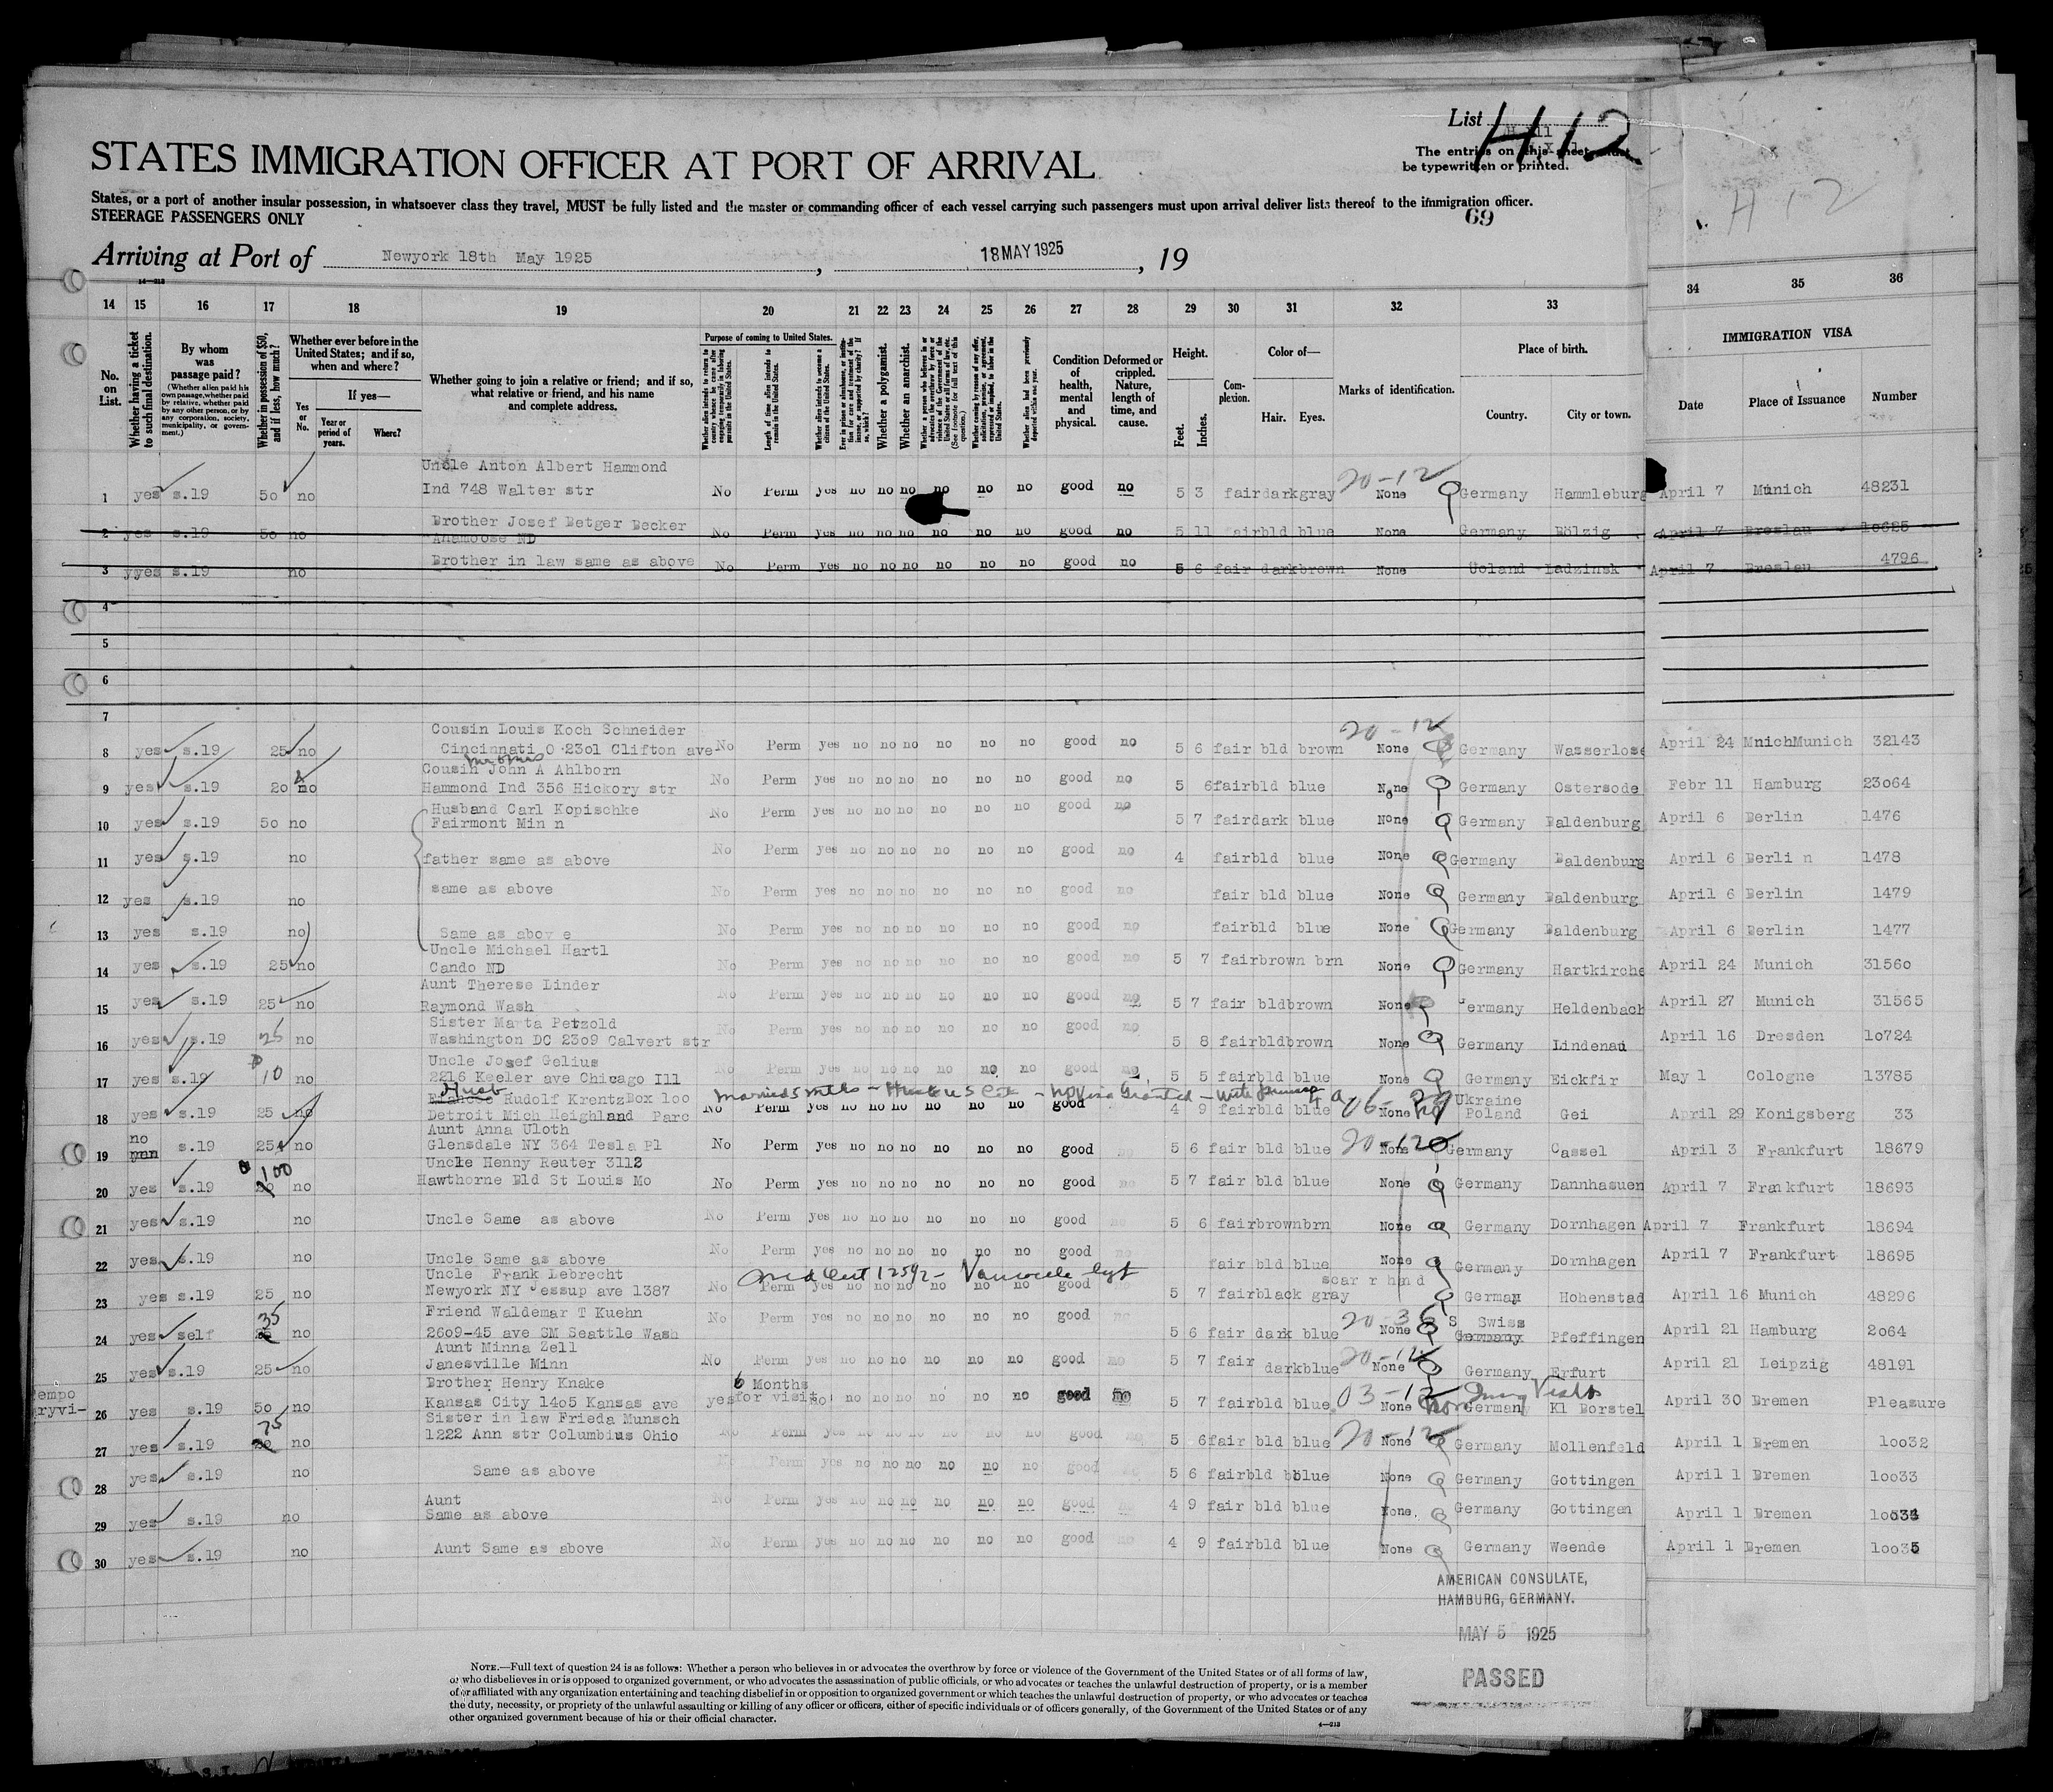 List H 12
The entries on this sheet must
be typewritten or printed.
H 12
STATES IMMIGRATION OFFICER AT PORT OF ARRIVAL
States, or a port of another insular possession, in whatsoever class they travel, MUST be fully listed and the master or commanding officer of each vessel carrying such passengers must upon arrival deliver lists thereof to the immigration officer.
STEERAGE PASSENGERS ONLY
69
Arriving at Port of Newyork 18th May 1925, 18 MAY 1925, 19
14 15 16 17 18 19 20 21 22 23 24 25 26 27 28 29 30 31 32 33 34 35 36
No. on List.
Whether having a ticket to such final destination.
By whom was passage paid?
(Whether alien paid his own passage, whether paid by relative, whether paid by any other person, or by any corporation, society, municipality, or government.)
Whether in possession of $50, and if less, how much?
Whether ever before in the United States; and if so, when and where?
Yes or No.
If yes—
Year or period of years.
Where?
Whether going to join a relative or friend; and if so, what relative or friend, and his name and complete address.
Purpose of coming to United States.
Length of time alien intends to remain in the United States.
Whether alien intends to become a citizen of the United States.
Whether a polygamist.
Whether an anarchist.
Condition of health, mental and physical.
Deformed or crippled. Nature, length of time, and cause.
Height.
Feet.
Inches.
Complexion.
Color of—
Hair.
Eyes.
Marks of identification.
Place of birth.
Country.
City or town.
IMMIGRATION VISA
Date
Place of Issuance
Number
Uncle Anton Albert Hammond
1 yes s.19 50 no Ind 748 Walter str No Perm yes no no no no no no good no 5 3 fair dark gray 20-12 None Germany Hammleburg April 7 Munich 48231
Brother Josef Betger Becker
2 yes s.19 50 no Anamoose ND No Perm yes no no no no no no good no 5 11 fair bld blue None Germany Bölzig April 7 Breslau 10625
3 yyes s.19 no Brother in law same as above No Perm yes no no no no no no good no 5 6 fair dark brown None Uoland Ladzinsk April 7 Breslau 4796
4
5
6
7
Cousin Louis Koch Schneider
8 yes s.19 25 no Cincinnati O 2301 Clifton ave No Perm yes no no no no no no good no 5 6 fair bld brown 20-12 None Germany Wasserlose April 24 MnichMunich 32143
Cousin John A Ahlborn
9 yes s.19 20 no Hammond Ind 356 Hickory str No Perm yes no no no no no no good no 5 6 fair bld blue None Germany Osterode Febr 11 Hamburg 23064
Husband Carl Kopischke
10 yes s.19 50 no Fairmont Min n No Perm yes no no no no no no good no 5 7 fair dark blue None Germany Baldenburg April 6 Berlin 1476
11 yes s.19 no father same as above No Perm yes no no no no no no good no 4 fair bld blue None Germany Baldenburg April 6 Berli n 1478
12 yes s.19 no same as above No Perm yes no no no no no no good no fair bld blue None Germany Baldenburg April 6 Berlin 1479
13 yes s.19 no Same as abov e No Perm yes no no no no no no good no fair bld blue None Germany Baldenburg April 6 Berlin 1477
Uncle Michael Hartl
14 yes s.19 25 no Cando ND No Perm yes no no no no no no good no 5 7 fair brown brn None Germany Hartkirche April 24 Munich 31560
Aunt Therese Linder
15 yes s.19 25 no Raymond Wash No Perm yes no no no no no no good no 5 7 fair bld brown None Germany Heldenbach April 27 Munich 31565
Sister Marta Petzold
16 yes s.19 25 no Washington DC 2309 Calvert str No Perm yes no no no no no no good no 5 8 fair bld brown None Germany Lindenau April 16 Dresden 10724
Uncle Josef Gelius
17 yes s.19 10 no 2216 Keeler ave Chicago Ill No Perm yes no no no no no no good no 5 5 fair bld blue None Germany Eickfir May 1 Cologne 13785
Husb Rudolf Krentz Box 100
18 yes s.19 25 no Detroit Mich Heighland Parc No Perm yes no no no no no no good 4 9 fair bld blue None Ukraine Poland Gei April 29 Konigsberg 33
Aunt Anna Uloth
19 no s.19 25 no Glensdale NY 364 Tesla Pl No Perm yes no no no no no no good no 5 6 fair bld blue 20-12 None Germany Cassel April 3 Frankfurt 18679
Uncle Henny Reuter 3112
20 yes s.19 100 no Hawthorne Bld St Louis Mo No Perm yes no no no no no no good no 5 7 fair bld blue None Germany Dannhasuen April 7 Frankfurt 18693
21 yes s.19 no Uncle Same as above No Perm yes no no no no no no good no 5 6 fair brown brn None Germany Dornhagen April 7 Frankfurt 18694
22 yes s.19 no Uncle Same as above No Perm yes no no no no no no good no fair bld blue None Germany Dornhagen April 7 Frankfurt 18695
Uncle Frank Lebrecht
23 yes s.19 25 no Newyork NY Jessup ave 1387 No Perm yes no no no no no no good no 5 7 fair black gray scar r hand Germany Hohenstad April 16 Munich 48296
Friend Waldemar T Kuehn
24 yes self 35 no 2609-45 ave SM Seattle Wash No Perm yes no no no no no no good no 5 6 fair dark blue None S Swiss Germany Pfeffingen April 21 Hamburg 2064
Aunt Minna Zell
25 yes s.19 25 no Janesville Minn No Perm yes no no no no no no good no 5 7 fair dark blue 20-12 None Germany Erfurt April 21 Leipzig 48191
Brother Henry Knake 6 Months
26 yes s.19 50 no Kansas City 1405 Kansas ave yes for visit no no no no no no no good no 5 7 fair bld blue 03-12 None Germany Kl Borstel April 30 Bremen Pleasure
Sister in law Frieda Munsch
27 yes s.19 75 no 1222 Ann str Columbius Ohio No Perm yes no no no no no no good no 5 6 fair bld blue 20-12 None Germany Mollenfeld April 1 Bremen 10032
28 yes s.19 no Same as above No Perm yes no no no no no no good 5 6 fair bld blue None Germany Gottingen April 1 Bremen 10033
Aunt
29 yes s.19 no Same as above No Perm yes no no no no no no good 4 9 fair bld blue None. Germany Gottingen April 1 Bremen 10034
30 yes s.19 no Aunt Same as above No Perm yes no no no no no no good no 4 9 fair bld blue None Germany Weende April 1 Bremen 10035
AMERICAN CONSULATE,
HAMBURG, GERMANY.
MAY 5 1925
PASSED
NOTE.—Full text of question 24 is as follows: Whether a person who believes in or advocates the overthrow by force or violence of the Government of the United States or of all forms of law,
or who disbelieves in or is opposed to organized government, or who advocates the assassination of public officials, or who advocates or teaches the unlawful destruction of property, or is a member
of or affiliated with any organization entertaining and teaching disbelief in or opposition to organized government or which teaches the unlawful destruction of property, or who advocates or teaches
the duty, necessity, or propriety of the unlawful assaulting or killing of any officer or officers, either of specific individuals or of officers generally, of the Government of the United States or of any
other organized government because of his or their official character.